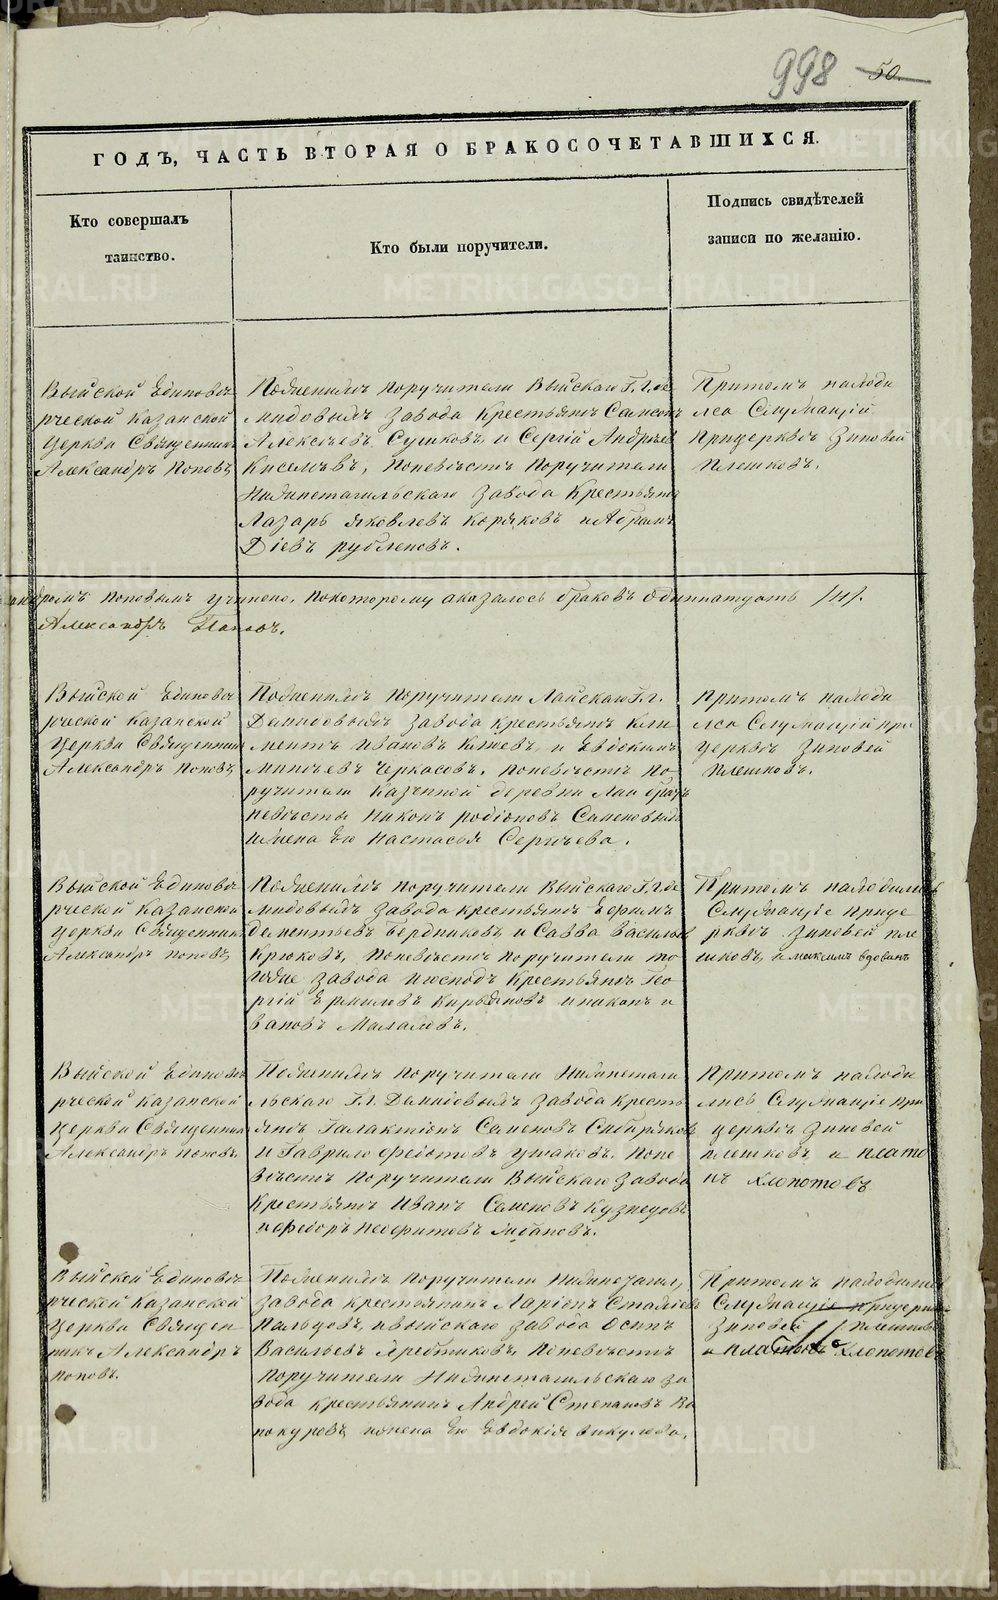 998 50.
ГОДЪ, ЧАСТЬ ВТОРАЯ О БРАКОСОЧЕТАВШИХСЯ.
Кто совершалъ
таинство.
Кто были поручители.
Подпись свидѣтелей
записи по желанію.
Выйской Единовѣ
рческой Казанской
Церкви Священникъ
Александръ Поповъ
Поженихѣ поручители Выйскаго Г.Г. де
мидовыхъ завода крестьянѣ Самсонъ
Алексѣевъ Сушковъ, и Сергій Андрѣев
Киселѣвъ, поневѣстѣ поручители
Нижнетагильскаго завода крестьянѣ
Лазарь Яковлевъ Коряковъ и Абрамъ
Діевъ рубленовъ.
Притомъ находи
лса Служащій
прицерквѣ Зиновей
Плешковъ.
андромъ Поповымъ учинено, покоторому оказалось браковъ одиннатцать /11/.
Александръ Поповъ.
Выйской Единовѣ
рческой Казанской
Церкви Священникъ
Александръ Поповъ
Поженихѣ поручители Лайскаго Г.Г.
Демидовыхъ завода крестьянѣ кли
ментъ Ивановъ и Евдокимъ
Черкасовъ. поневѣстѣ по
ручители Казенной деревни Лаи братъ
невѣсты Никонъ родіоновъ
ижена Его Настасья Сергѣева.
Притомъ находи
лса Служащій при
Церквѣ Зиновей
Плешковъ.
Выйской Единовѣ
рческой Казанской
Церкви Священникъ
Александръ поповъ
Поженихѣ поручители Выйскаго Г.Г. де
мидовыхъ завода крестьянѣ Ефимъ
дементьевъ Бердниковъ и Савва Васильев
Крюковъ, Поневѣстѣ поручители то
гоже завода крестьянѣ Гео
ргій Ермиловъ Кирьяновъ иниконъ и
вановъ
Притомъ находились
Служащіе прице
рквѣ Зиновей пле
шковъ, и максимъ
Выйской Единовѣ
рческой Казанской
Церкви Священникъ
Александръ поповъ.
Поженихѣ поручители Нижнетаги
льскаго Г.Г. Демидовыхъ завода кресть
янѣ Галактіонъ Семеновъ Сибиряковъ
и Гаврило Федотовъ ушаковъ. поне
вѣстѣ поручители Выйскаго завода
крестьянѣ Иванъ Семеновъ Кузнецовъ
иФедоръ Неофитовъ
Притомъ находи
лись Служащіе при
церквѣ Зиновей
плешковъ и плато
нъ Хлопотовъ
Выйской Единовѣ
рческой Казанской
Церкви Священ
никъ Александръ
поповъ.
Поженихѣ поручители Нижнетагил.
завода крестьянинъ Ларіонъ
Пальцовъ, ивыйскаго завода Осипъ
Васильевъ поневѣстѣ
поручители Нижнетагильскаго за
вода крестьянинъ Андрей Степановъ Ви
нокуровъ, ижена Его Евдокія викулова.
Притомъ находились
Служащіе прицерквѣ
Зиновей плешковъ
и платонъ Хлопотовъ
METRIKI.GASO-URAL.RU